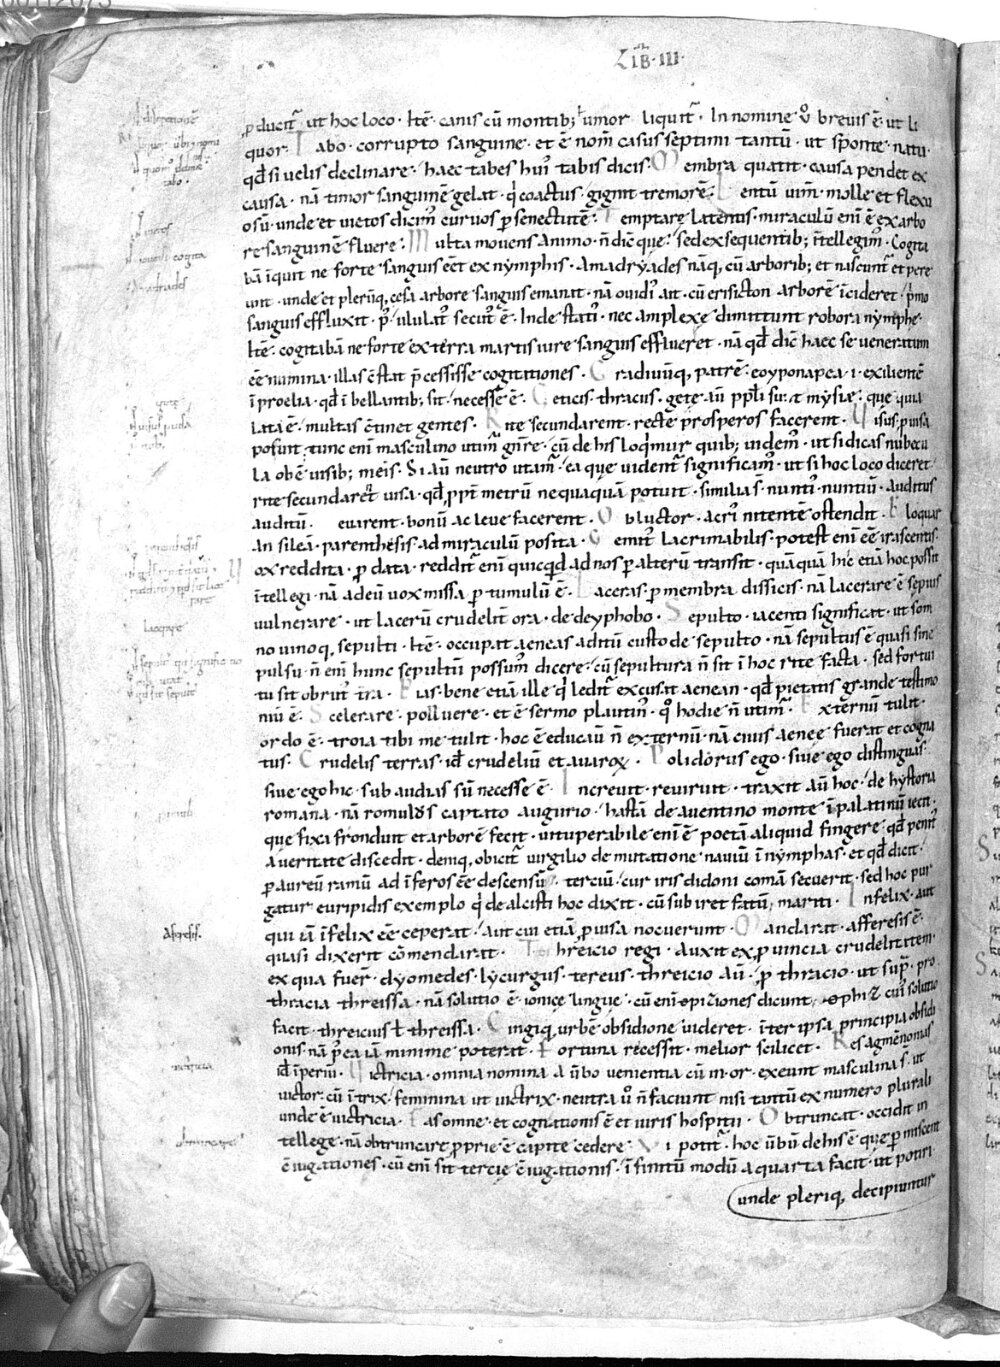 LIB · III ·
ꝓducit̄ ut hoc loco · Itē canis cū montib; umor liquit̄ · In nomine ỏ brevis ē · ut li
quor · Tabo · corrupto sanguine · et ē nom̄ casus septimi tantū · ut sponte natu
qđ si velis declinare · haec tabes hui' tabis dicis · Membra quatit · causa pendet ex
causa · nā timor sanguinē gelat · q̍ coactus gignit tremorē · Lentū vim̄ · molle et flexu
osū · unde et vietos dicim' curvos ꝑ senectutē · Temptare latentis · miraculū enī ē ex arbo
re sanguinē fluere · Multa movens animo · n̄ dic̄ que · sed exsequentib; ītellegim' · Cogita
bā īquit ne forte sanguis eēt ex nymphis · Amadryades nāq, cū arborib; et nascunt̄ et pere
unt · unde et plerūq, cesa arbore sanguis emanat · nā ovidi' ait · cū erisicton arborē īcideret · p̍mo
sanguis effluxit · p' ululat' secut' ē · Inde statī · nec amplexe dimittunt robora nymphe ·
Itē · cogitabā ne forte ex terra martis iure sanguis efflueret · nā qđ dic̄ haec se veneratum
eē numina · illas c̄stat p̄cessisse cogitationes · Gradivūq, patrē · εουρonapea · i · exilientē
ī proelia · qđ ī bellantib; sit necesse ē · Geticis · thracus · gete aū pp̄li sūt mysiae · que quia
lata ē · multas c̄tinet gentes · Rite secundarent · recte prosperos facerent · Visus · ꝓvisa
posuit · tunc enī masculino utim̄ gn̄re · cū de his loq̍mur quib; videm' · ut si dicas nubecu
la ob ē visib; meis · Si aū neutro utam̄ · ea que vident̄ significam' · ut si hoc loco diceret
rite secundaret visa · qđ pp̄t metrū nequaquā potuit · similia s̄ · nunti' nuntiū · auditus
auditū · evarent · bonū ac leve facerent · Obluctor · acri' nitentē ostendit · Eloquar
an sileā · parenthesis · ad miraculū posita · Gemit' lacrimabilis · potest enī eē et irascentis
Vox reddita · ꝓ data · reddit̄ enī quicq̍d ad nos ꝑ alterū transit · quāquā hic etiā hoc possit
ītellegi · nā ad eū vox missa ꝑ tumulū ē · Laceras · ꝑ membra dissicis · nā lacerare ē sepius
vulnerare · ut lacerū crudelit̄ ora · de deyphobo · Sepulto · iacenti significat · ut som
no vinoq, sepulti · Itē · occupat aeneas aditū custode sepulto · nā sepultus ē quasi sine
pulsu · n̄ enī hunc sepultū possum' dicere · cū sepultura n̄ sit ī hoc rite facta · sed fortui
tu sit obrut' t̄ra · Pias · bene etiā ille q̍ ledit̄ excusat aenean · qđ pietatis grande testimo
niū ē · Scelerare · polluere · et ē sermo plautin' · q° hodie n̄ utim̄ · Externū tulit ·
ordo ē · troia tibi me tulit · hoc ē educavi n̄ externū · nā civis aenee fuerat et cogna
tus · Crudelis terras · id̄ crudeliū et avarox · Polidorus ego · sive ego distinguas ·
sive ego hic · sub audias sū necesse ē · Increvit · revirvit · traxit aū hoc · de hystoria
romana · nā romul's captato augurio · hastā de aventino monte ī palatinū iecit ·
que fixa fronduit et arborē fecit · vituperabile enī ē poetā aliquid fingere qđ penit'
a veritate discedit · deniq, obicit̄ virgilio de mutatione naviū ī nymphas · et qđ dicit ·
ꝑ aureū ramū ad īferos eē descensū · terciū · cur iris didoni comā secuerit · sed hoc pur
gatur euripidis exemplo q̍ de alcesti hoc dixit · cū subiret fatū mariti · Infelix · aut
qui iā īfelix eē ceperat · aut cui etiā ꝓvisa nocuerunt · Mandarat · afferesis ē ·
quasi dixerit cōmendarat · Threicio regi · auxit ex ꝓvincia crudelitatem ·
ex qua fuer̄ · dyomedes · lycurgus · tereus · threicio aū · ꝓ thracio · ut sup̄ · pro
thracia threissa · nā solutio ē · ionice lingue · cū enī dicunt cui' solutio
facit · threicius ł threissa · Cingiq, urbē obsidione videret · īter ipsa principia obsidi
onis · nā p' ea iā minime poterat · Fortuna recessit · melior scilicet · Res agmēnonias
id̄ īperiū · Victricia · omnia nomina a v̄bo venientia cū in · or · exeunt masculina s̄ · ut
victor · cū ī trix · feminina ut victrix · neutra ỏ n̄ faciunt nisi tantū ex numero plurali
unde ē victricia · Fas omne · et cognationis ē et iuris hospitii · Obtruncat · occidit in
tellege · nā obtruncare ꝓprie ē capite cedere · Vi potit̄ · hoc v̄bū de his ē que ꝑmiscent
c̄iugationes · cū enī sit tercie c̄iugationis · īfinitū modū a quarta facit · ut potiri
unde pleriq, decipiuntur
Aferesis ·